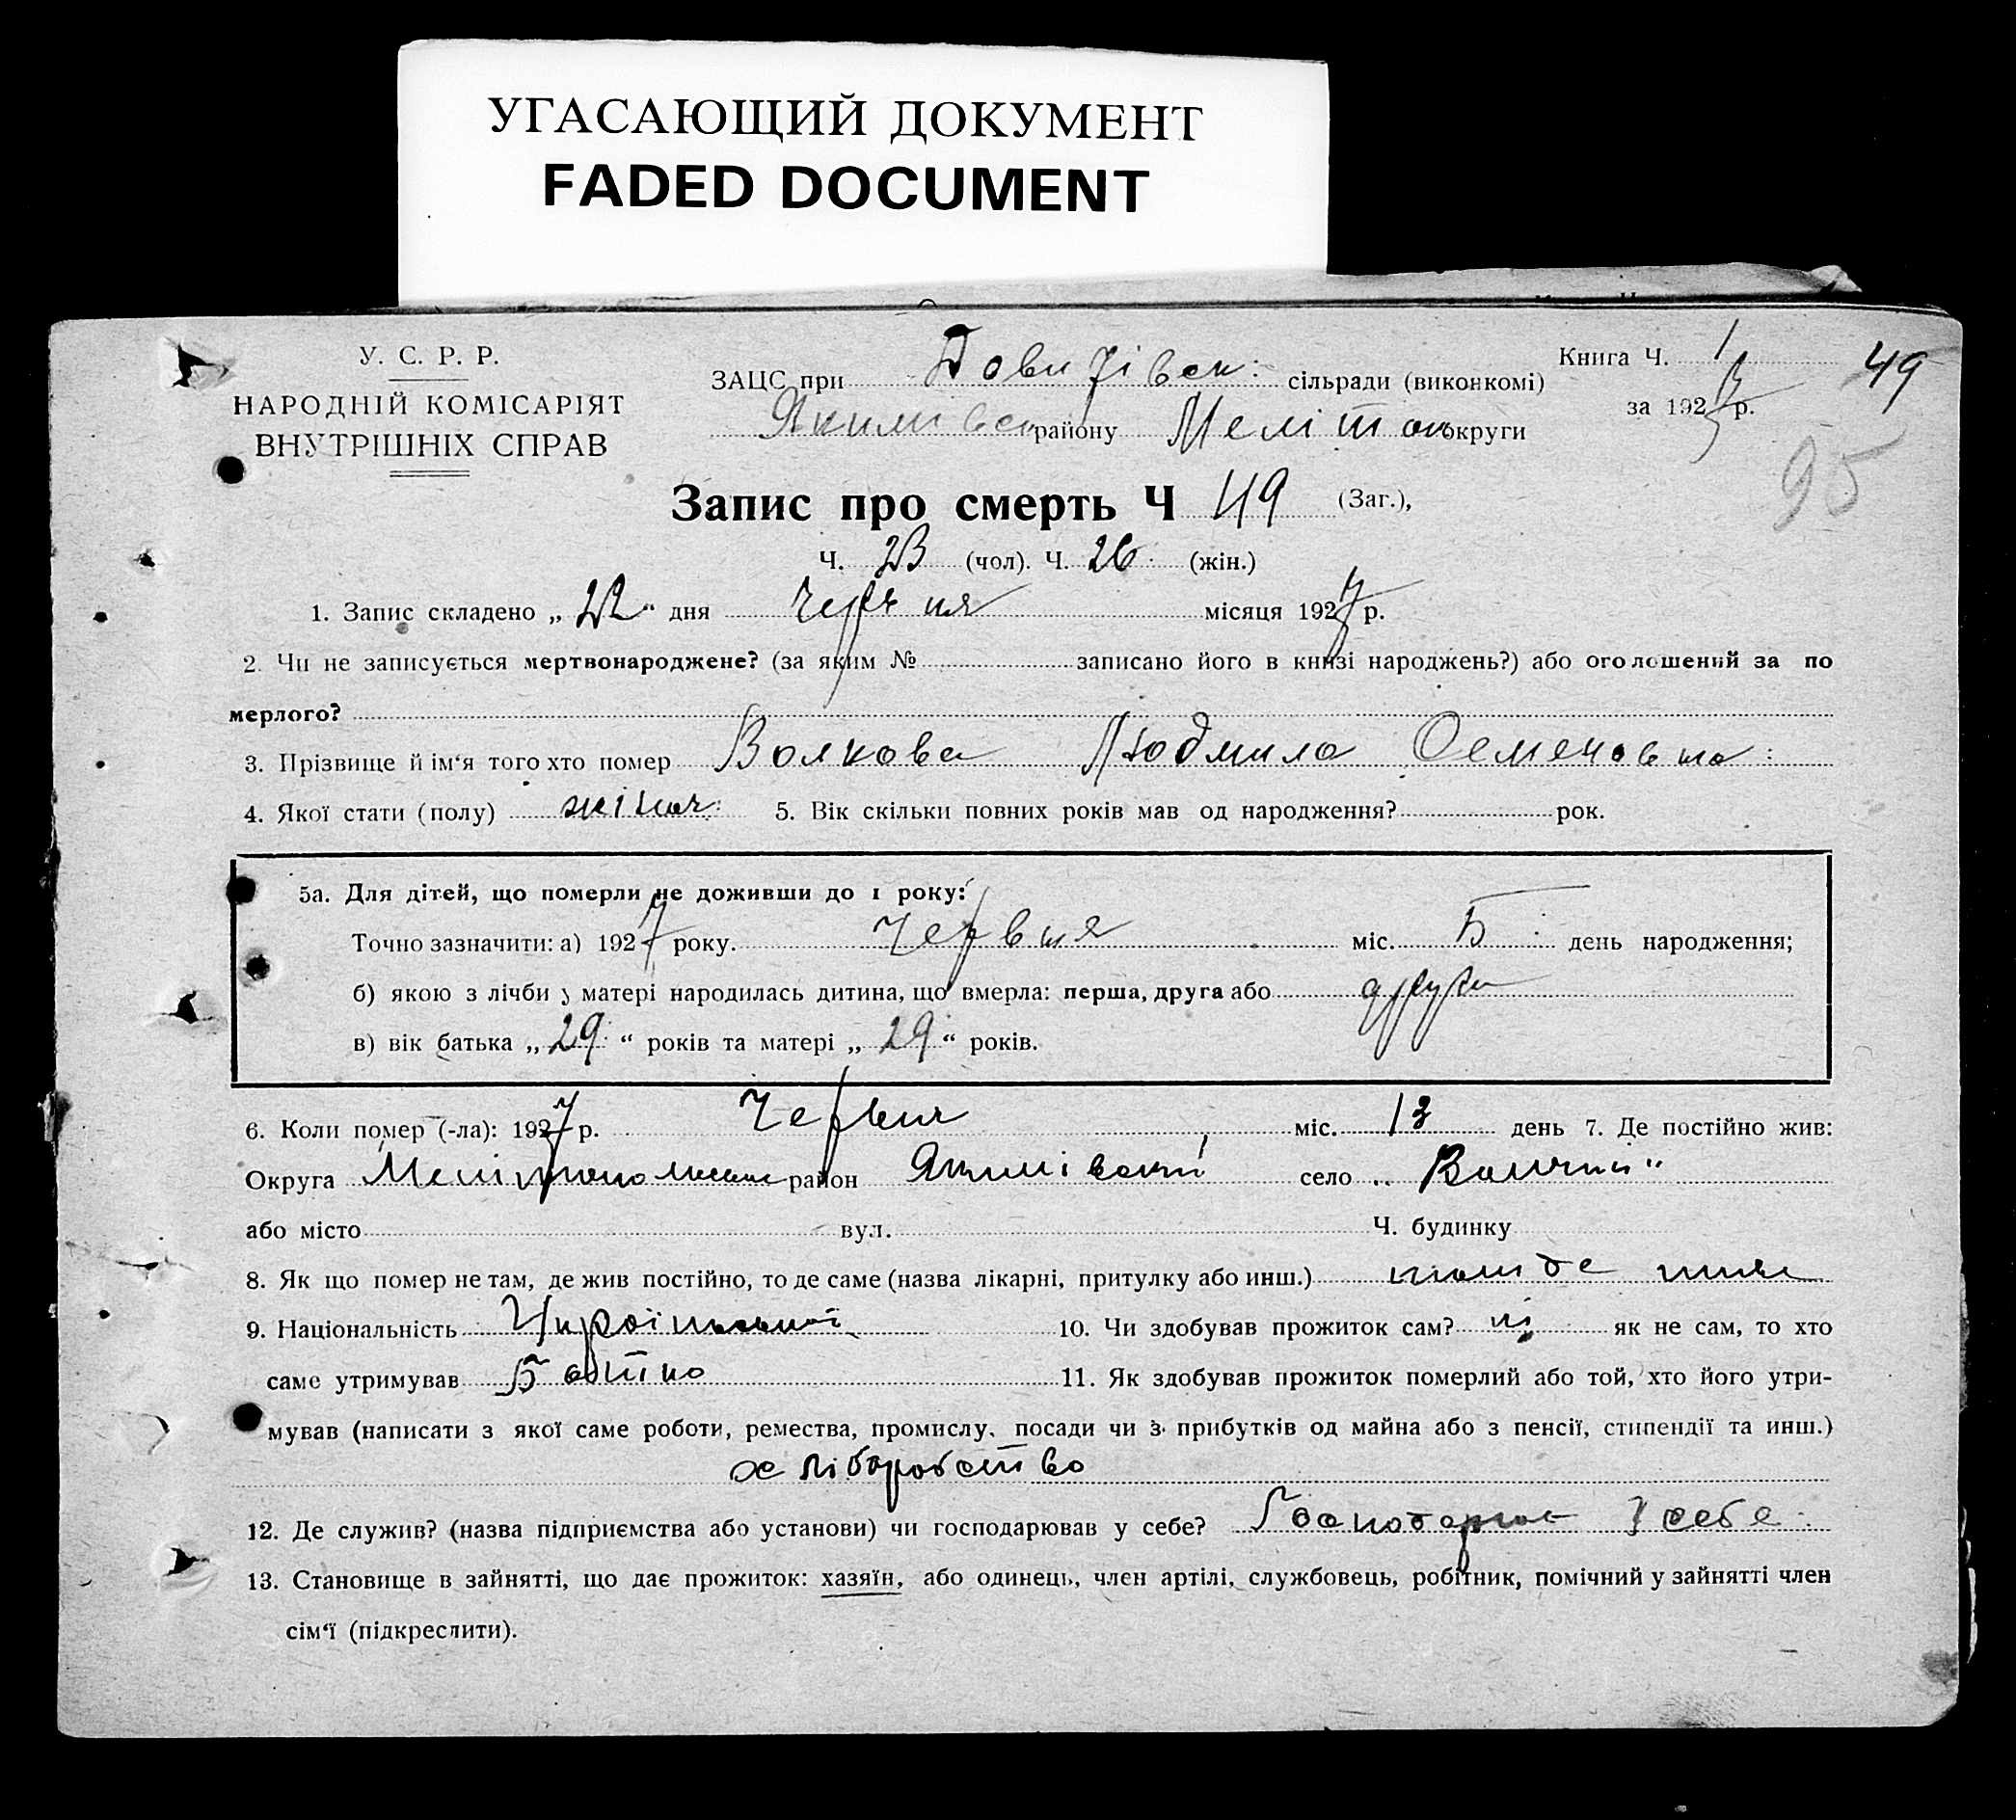 УГАСАЮЩИЙ ДОКУМЕНТ
FADED DOCUMENT
У. С. Р. Р.
НАРОДНІЙ КОМІСАРІЯТ
ВНУТРІШНІХ СПРАВ
ЗАЦС при сільради (виконкомі)
Якимівськ району Мелітоп округи
Книга Ч. 1
за 1927 р.
49
95
Запис про смерть Ч 49 (Заг.),
Ч. 23 (чол). Ч. 26 (жін.)
1. Запис складено „ 22 “ дня Червня місяця 1927 р.
2. Чи не записується мертвонароджене? (за яким № записано його в книзі народжень?) або оголошений за по
мерлого?
3. Прізвище й ім‘я того хто помер Волкова Людмила Семеновна
4. Якої стати (полу) жіноч: 5. Вік скільки повних років мав од народження? рок.
5а. Для дітей, що померли не доживши до 1 року:
Точно зазначити: а) 1927 року. Червня міс. 5 день народження;
б) якою з лічби у матері народилась дитина, що вмерла: перша, друга або друга
в) вік батька „ 29 “ років та матері „ 29 “ років.
6. Коли помер (-ла): 1927 р. Червня міс. 13 день 7. Де постійно жив:
Округа район Якимівський село
або місто вул. Ч. будинку
8. Як що помер не там, де жив постійно, то де саме (назва лікарні, притулку або инш.)
9. Національність 10. Чи здобував прожиток сам? ні як не сам, то хто
саме утримував Батько 11. Як здобував прожиток померлий або той, хто його утри-
мував (написати з якої саме роботи, ремества, промислу, посади чи з прибутків од майна або з пенсії, стипендії та инш.)
хліборобство
12. Де служив? (назва підприємства або установи) чи господарював у себе? у себе
13. Становище в зайнятті, що дає прожиток: хазяїн, або одинець, член артілі, службовець, робітник, помічний у зайнятті член
сім‘ї (підкреслити).